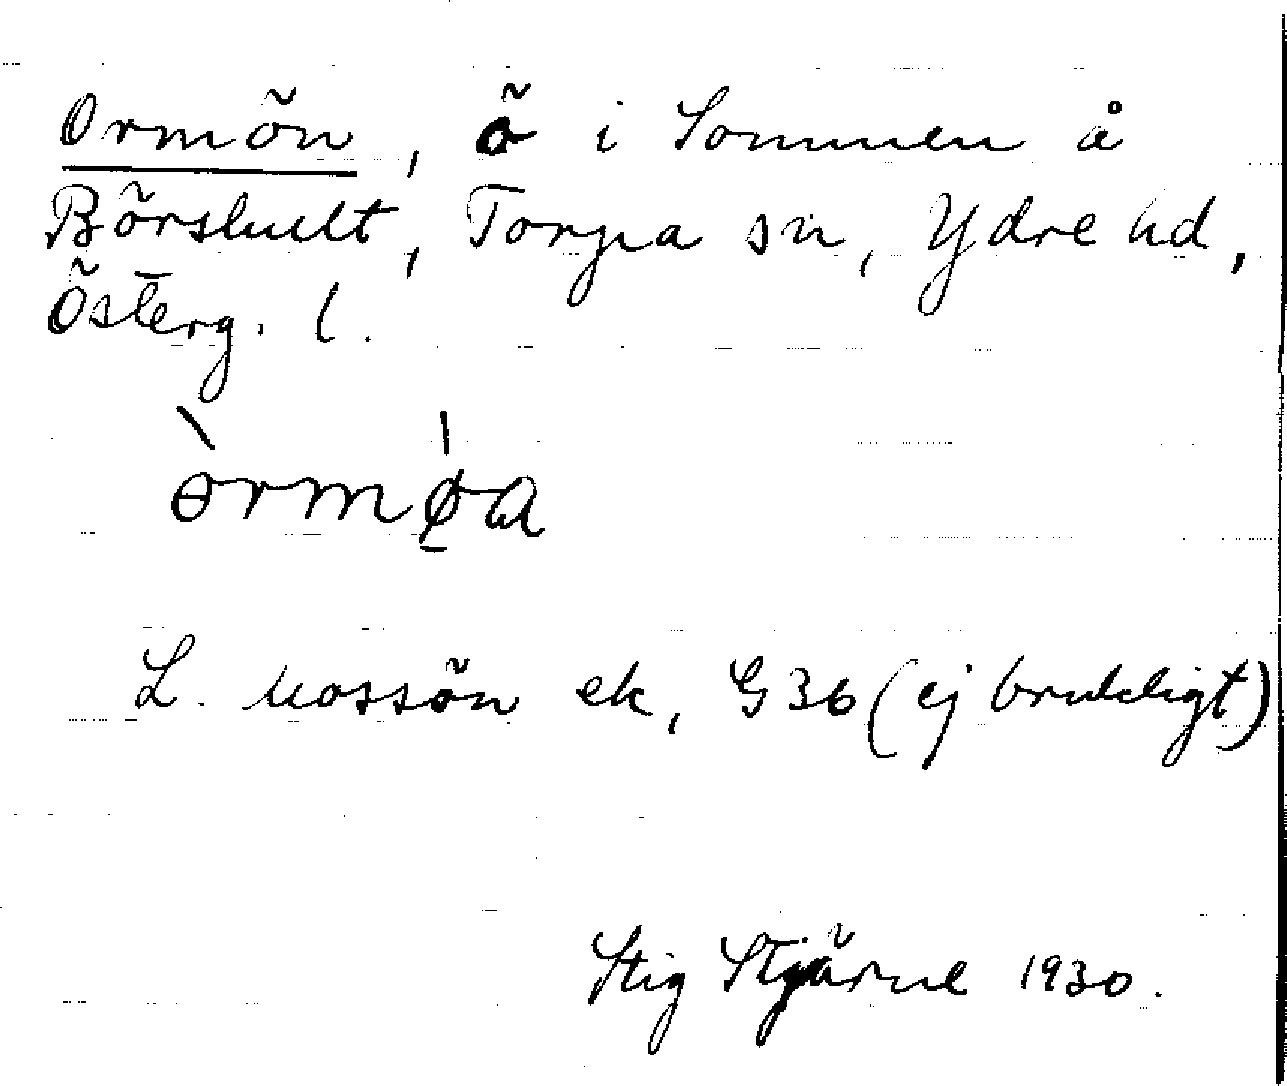 Ormön, ö i Sommen å
Börshult, Torpa sn, Ydre hd,
Österg. l.
òrmǿ̱a
L. Mossön ek, G36 (ej brukligt)
Stig Stjärne 1930.